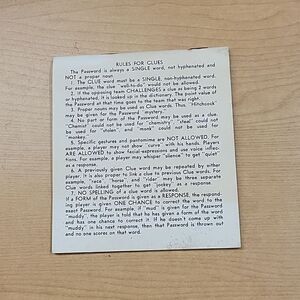 RULES FOR CLUES
The Password is always a SINGLE word, not hyphenated and
NOT a proper noun.
1. The CLUE word must be a SINGLE, non-hyphenated word.
For example, the clue "well-to-do" would not be allowed.
2. If the opposing team CHALLENGES a clue as being 2 words
or hyphenated, it is looked up in the dictionary. The point value of
the Password at that time goes to the team that was right.
3. Proper nouns may be used as Clue words. Thus, "Hitchcock"
may be given for the Password "mystery".
4. No part or form of the Password may be used as a clue.
"Chemist" could not be used for "chemistry", "steal" could not
be used for "stolen", and "monk" could not be used for
"monkey".
5. Specific gestures and pantomime are NOT ALLOWED. For
example, a player may not show "curve" with his hands. Players
ARE ALLOWED to show facial expressions and use voice inflec-
tions. For example, a player may whisper "silence" to get "quiet"
as a response.
6. A previously given Clue word may be repeated by either
player. It is also proper to link a clue to previous Clue words. For
example, "race", "horse", and "rider" may be three separate
Clue words linked together to get "jockey" as a response.
7. NO SPELLING of a clue word is allowed.
If a FORM of the Password is given as a RESPONSE, the respond-
ing player is given ONE CHANCE to correct the word to the
exact Password. For example, if "mud" is given for the Password
"muddy", the player is told that he has given a form of the word
and has one chance to correct it. If he doesn't come up with
"muddy" in his next response, then that Password is thrown out
and no one scores on that word.